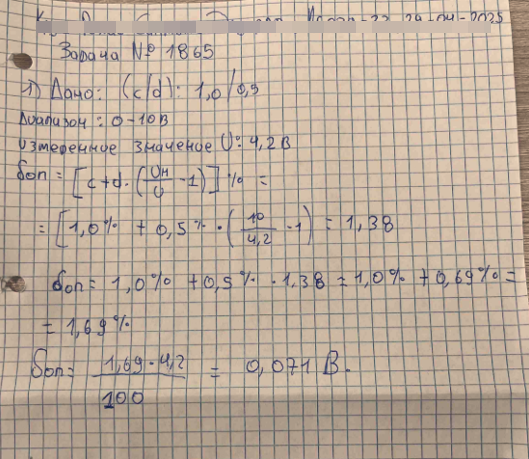 29-04-2025
Задача № 1865
1) Дано: (c/d): 1,0/0,5
Диапазон: 0-10В
Измеренное значение U: 4,2 В
δоп = [c+d·(Uн/U -1)] % =
= [1,0% + 0,5%·(10/4,2 -1) = 1,38
δоп = 1,0% + 0,5% · 1,38 = 1,0% + 0,69% =
= 1,69%
δоп = 1,69·4,2/100 = 0,071 В.